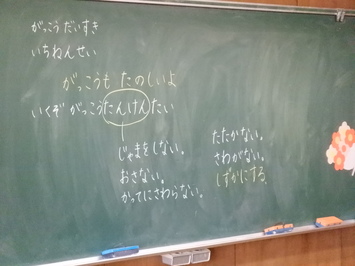 がっこう だいすき
いちねんせい
がっこうも たのしいよ
いくぞ がっこうたんけんたい
じゃまをしない。
おさない。
かってにさわらない。
たたかない。
さわがない。
しずかにする